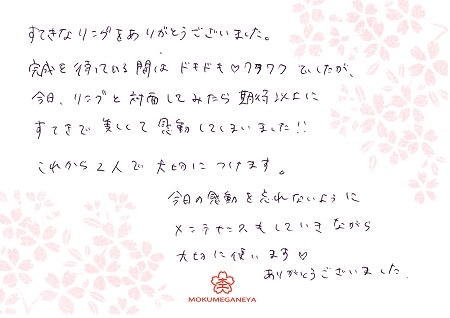 すてきなリングをありがとうございました。
完成を待っている間はドキドキ♡ワクワクでしたが、
今日、リングと対面してみたら期待以上に
すてきで美しくて感動してしまいました!!
これから2人で大切につけます。
今日の感動を忘れないように
メンテナンスもしていきながら
大切に使います♡
ありがとうございました。
MOKUMEGANEYA